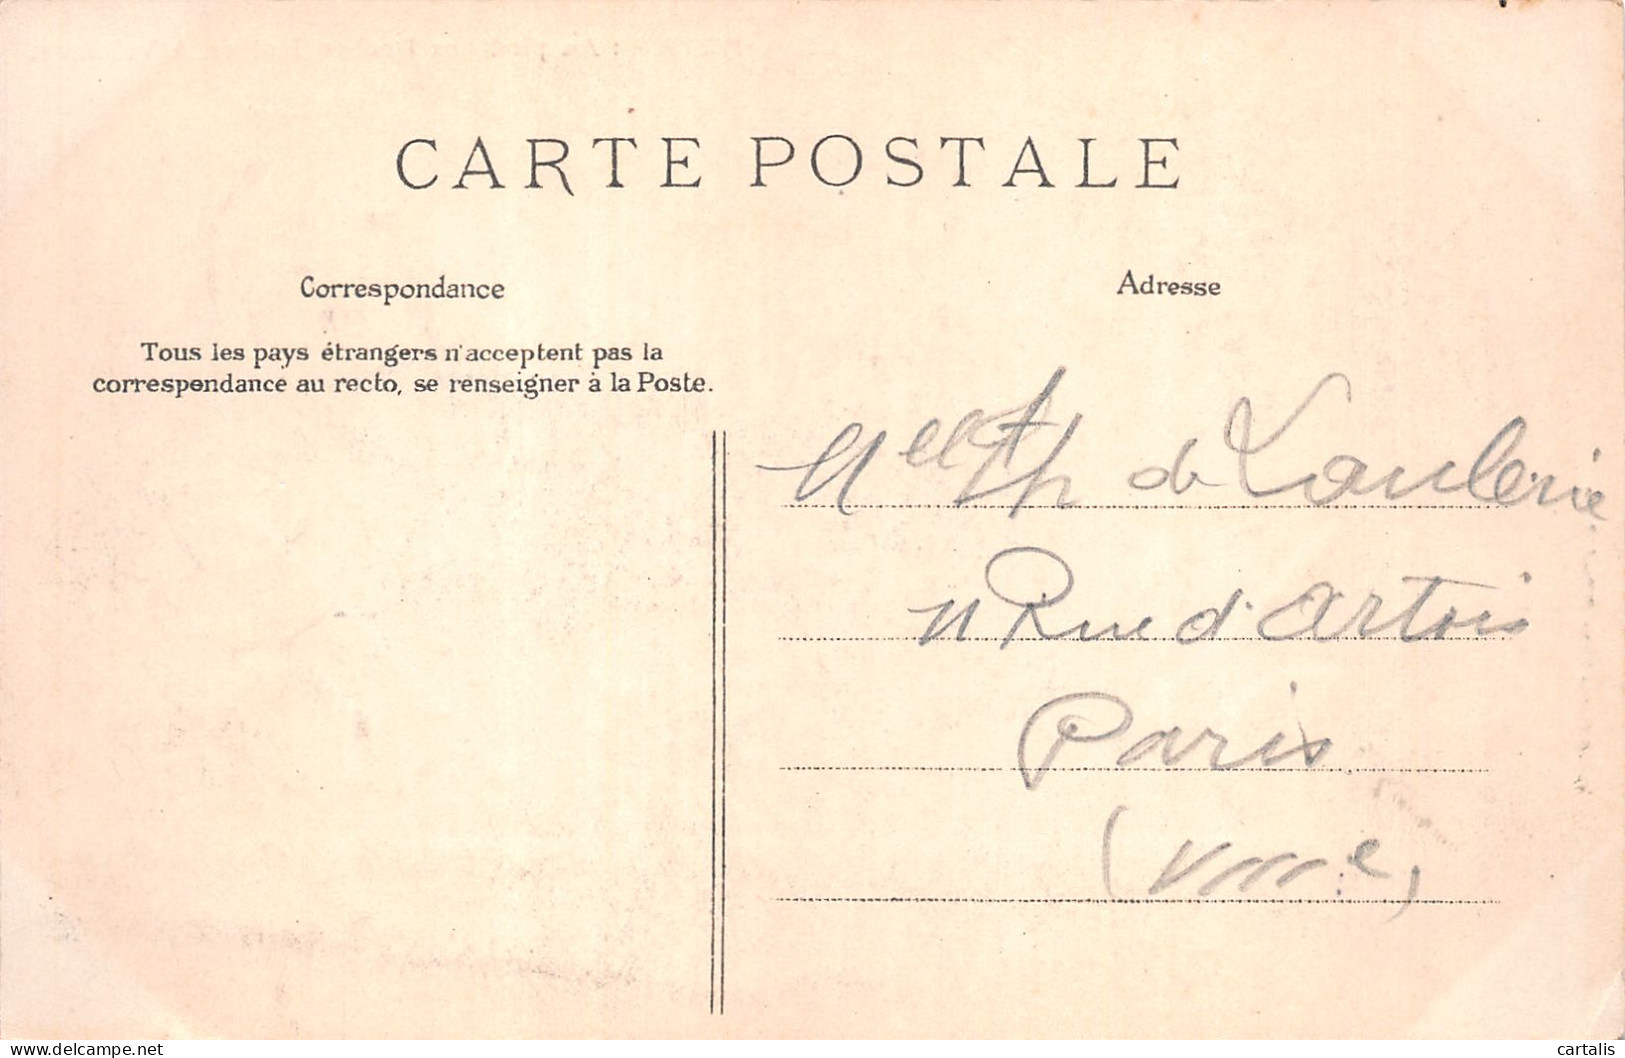 CARTE POSTALE
Correspondance
Tous les pays étrangers n'acceptent pas la
correspondance au recto, se renseigner à la Poste.
Adresse
de
11 Rue d'Artois
Paris
(VIIIe)
delcampe.net
cartalis